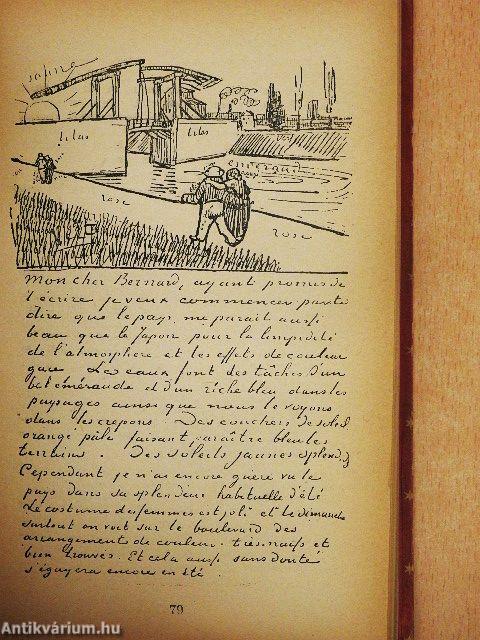 safrre
lilas
lilas
emeraud
rose
rose
Mon cher Bernard, ayant promis de
t'écrire je veux commencer par te
dire que le pays me parait aussi
beau que le Japon pour la limpidité
de l'atmosphere et les effets de couleur
gaie Les eaux font des tâches d'un
bel eméraude et d'un riche bleu dans les
paysages ainsi que nous le voyons
dans les crepons. Des couchers de soleil
orangé pâle faisant paraître bleu les
terrains. Des soleils jaunes splend.
Cependant je n'ai encore guère vu le
pays dans sa splendeur habituelle d'été
Le costume des femmes est joli et le dimanche
surtout on voit sur le boulevard des
arrangements de couleur très naifs et
bien trouvés. Et cela aussi sans doute
s'égayera encore en été.
79
Antikvárium.hu